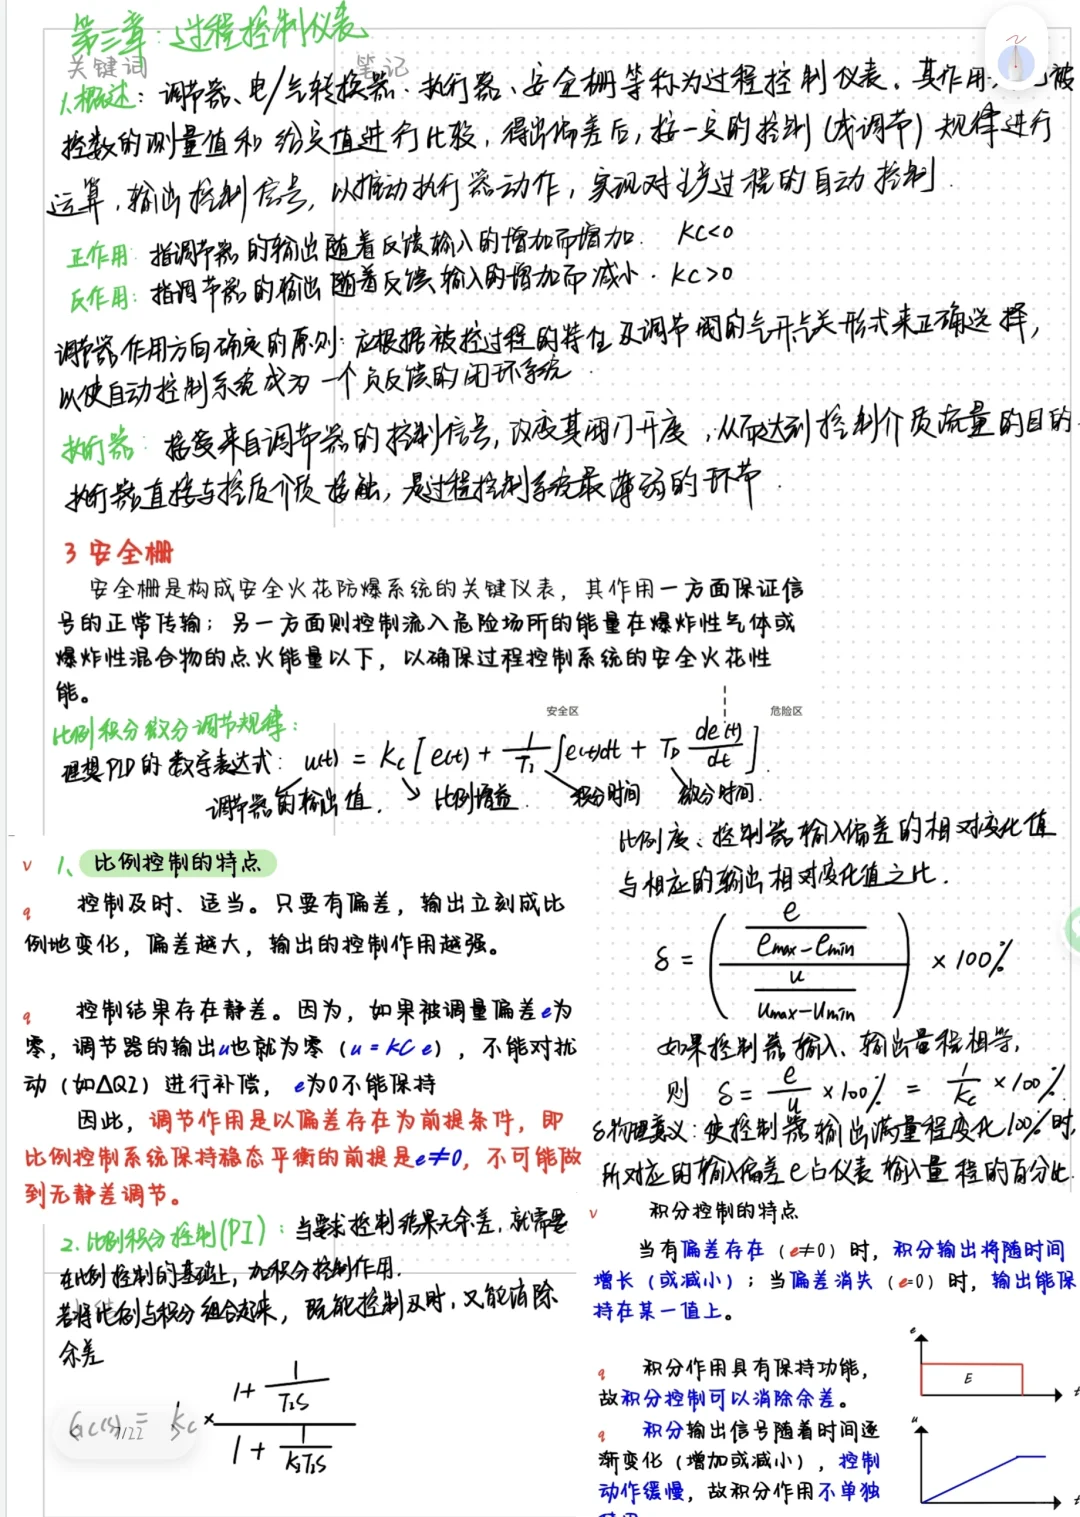 第三章：过程控制仪表
关键词
笔记
1.概述：调节器、电/气转换器、执行器、安全栅等称为过程控制仪表。其作用 被
控数的测量值和给定值进行比较，得出偏差后，按一定的控制（或调节）规律进行
运算，输出控制信号，以推动执行器动作，实现对生产过程的自动控制.
正作用：指调节器的输出随着反馈输入的增加而增加. KC<0
反作用：指调节器的输出随着反馈输入的增加而减小. KC>0
调节器作用方向确定的原则：应根据被控过程的特性及调节阀的气开气关形式来正确选择，
以使自动控制系统成为一个负反馈的闭环系统.
执行器：接受来自调节器的控制信号，改变其阀门开度，从而达到控制介质流量的目的.
执行器直接与控质介质接触，是过程控制系统最薄弱的环节.
3 安全栅
安全栅是构成安全火花防爆系统的关键仪表，其作用一方面保证信
号的正常传输；另一方面则控制流入危险场所的能量在爆炸性气体或
爆炸性混合物的点火能量以下，以确保过程控制系统的安全火花性
能。
安全区
危险区
比例积分微分调节规律：
理想PID的数字表达式：u(t) = Kc [e(t) + 1/T₁ ∫e(t)dt + T_D de(t)/dt].
调节器的输出值. 比例增益. 积分时间 微分时间.
1、比例控制的特点
控制及时、适当。只要有偏差，输出立刻成比
例地变化，偏差越大，输出的控制作用越强。
控制结果存在静差。因为，如果被调量偏差e为
零，调节器的输出u也就为零（u = KC e），不能对扰
动（如ΔQ2）进行补偿， e为0不能保持
因此，调节作用是以偏差存在为前提条件，即
比例控制系统保持稳态平衡的前提是e≠0，不可能做
到无静差调节。
2.比例积分控制(PI)：当要求控制结果无余差，就需要
在比例控制的基础上，加积分控制作用.
若将比例与积分组合起来，既能控制及时，又能消除
余差
Gc(s) = Kc × (1 + 1/(T₁S)) / (1 + 1/(K₁T₁S))
1/22
比例度：控制器输入偏差的相对变化值
与相应的输出相对变化值之比.
δ = ( (e/(emax-emin)) / (u/(umax-umin)) ) × 100%
如果控制器输入、输出量程相等，
则 δ = e/u × 100% = 1/Kc × 100%.
δ物理意义：使控制器输出满量程变化100%时，
所对应的输入偏差e占仪表输入量程的百分比.
积分控制的特点
当有偏差存在（e≠0）时，积分输出将随时间
增长（或减小）；当偏差消失（e=0）时，输出能保
持在某一值上。
积分作用具有保持功能，
故积分控制可以消除余差。
积分输出信号随着时间逐
渐变化（增加或减小），控制
动作缓慢，故积分作用不单独
e
E
t
u
t